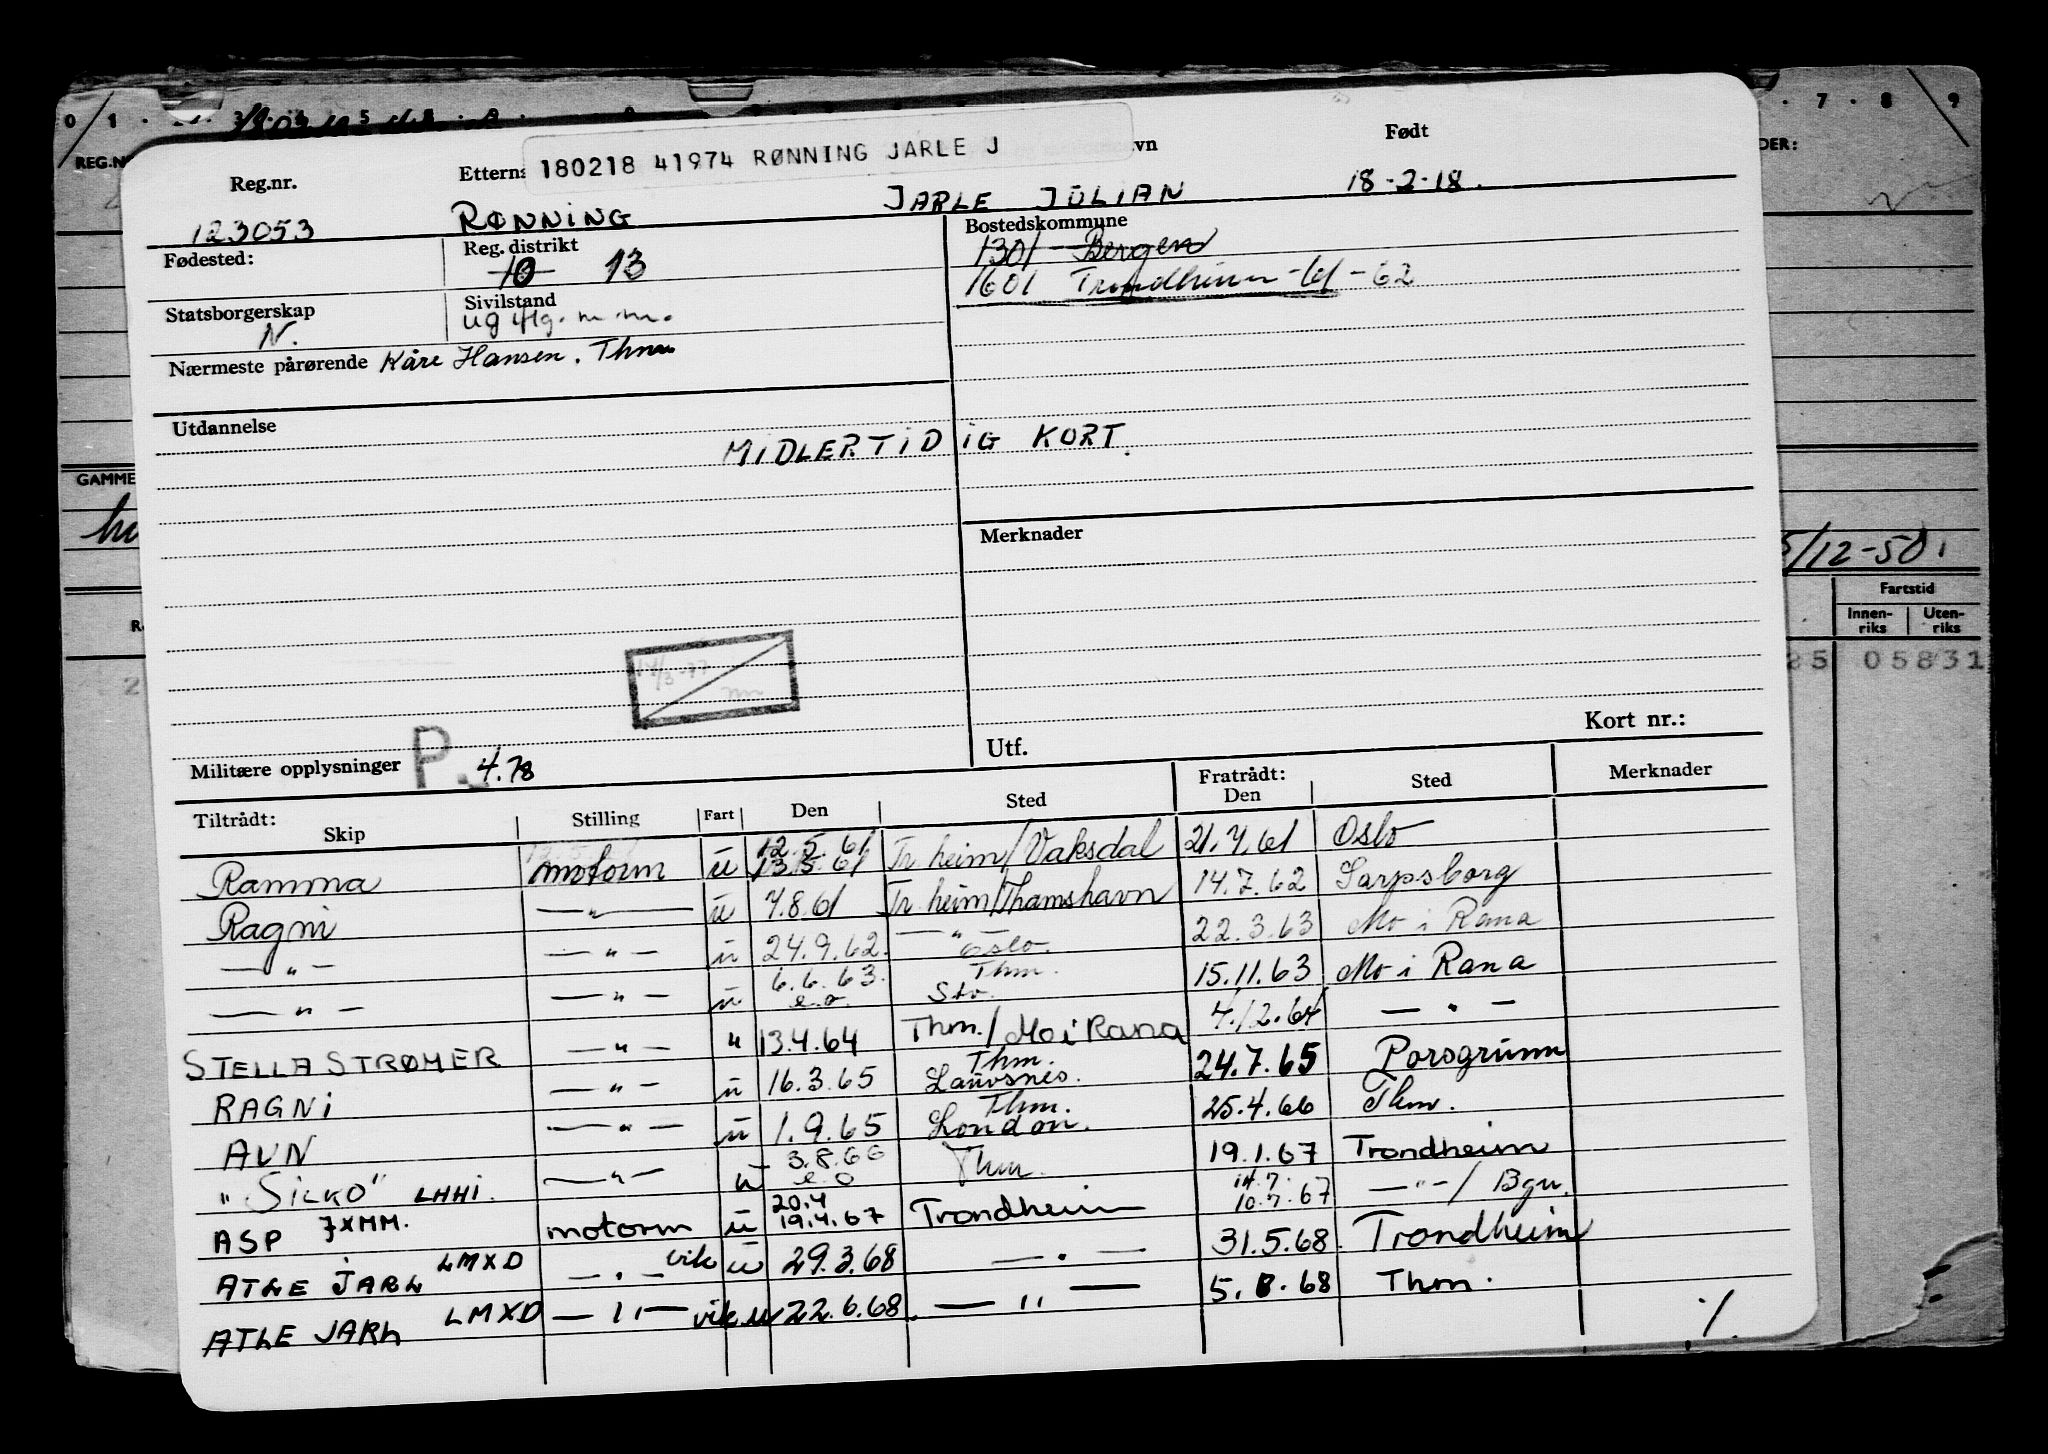 0 1 7 8 9
REG.N
DER:
180218 41974 RØNNING JARLE J
Reg.nr. Etterns vn Født
123053 RØNNING JARLE JULIAN 18-2-18.
Fødested: Reg. distrikt Bostedskommune
10 13 1301 Bergen
1601 Trondheim -61-62
Statsborgerskap Sivilstand
N. ug
Nærmeste pårørende Kåre Hansen. Thm
Utdannelse
MIDLERTIDIG KORT.
GAMME
Merknader
/12-50
Fartstid
Innen-riks Uten-riks
05831
Kort nr.:
Utf.
Militære opplysninger P. 4.78
Tiltrådt: Skip Stilling Fart Den Sted Fratrådt: Den Sted Merknader
Ramma motorm u 12.5.61 13.5.61 Tr. heim/Vaksdal 21.7.61 Oslo
Ragni —"— u 7.8.61 Tr. heim/Thamshavn 14.7.62 Sarpsborg
—"— —"— u 24.9.62. —"— Oslo. 22.3.63 Mo i Rana
—"— —"— u 6.6.63. e.o. Thm. Sto. 15.11.63 Mo i Rana
STELLA STRØMER —"— " 13.4.64 Thm./Mo i Rana 4/12.64 —"—
RAGNI —"— u 16.3.65 Thm. Lauvsnes. 24.7.65 Porsgrunn
AUN —"— u 1.9.65 Thm. London. 25.4.66 Thm.
"SILKO" LHHI. —"— u 3.8.66 e.o Thm. 19.1.67 Trondheim
ASP JXMM. motorm u 20.4 19.4.67 Trondheim 14.7. 10.7.67 —"—/Bgn.
ATLE JARL LMXD —"— vik u 29.3.68 —"— 31.5.68. Trondheim
ATLE JARL LMXD —"— vik u 22.6.68. —"— 5.8.68 Thm.
./.